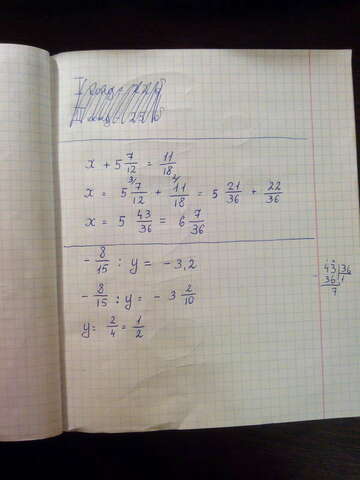 x + 5 7/12 = 11/18
x = 5 7/12 3/ + 11/18 2/ = 5 21/36 + 22/36
x = 5 43/36 = 6 7/36
- 8/15 : y = - 3,2
- 8/15 : y = - 3 2/10
y = 2/4 = 1/2
43 | 36
36 | 1
7